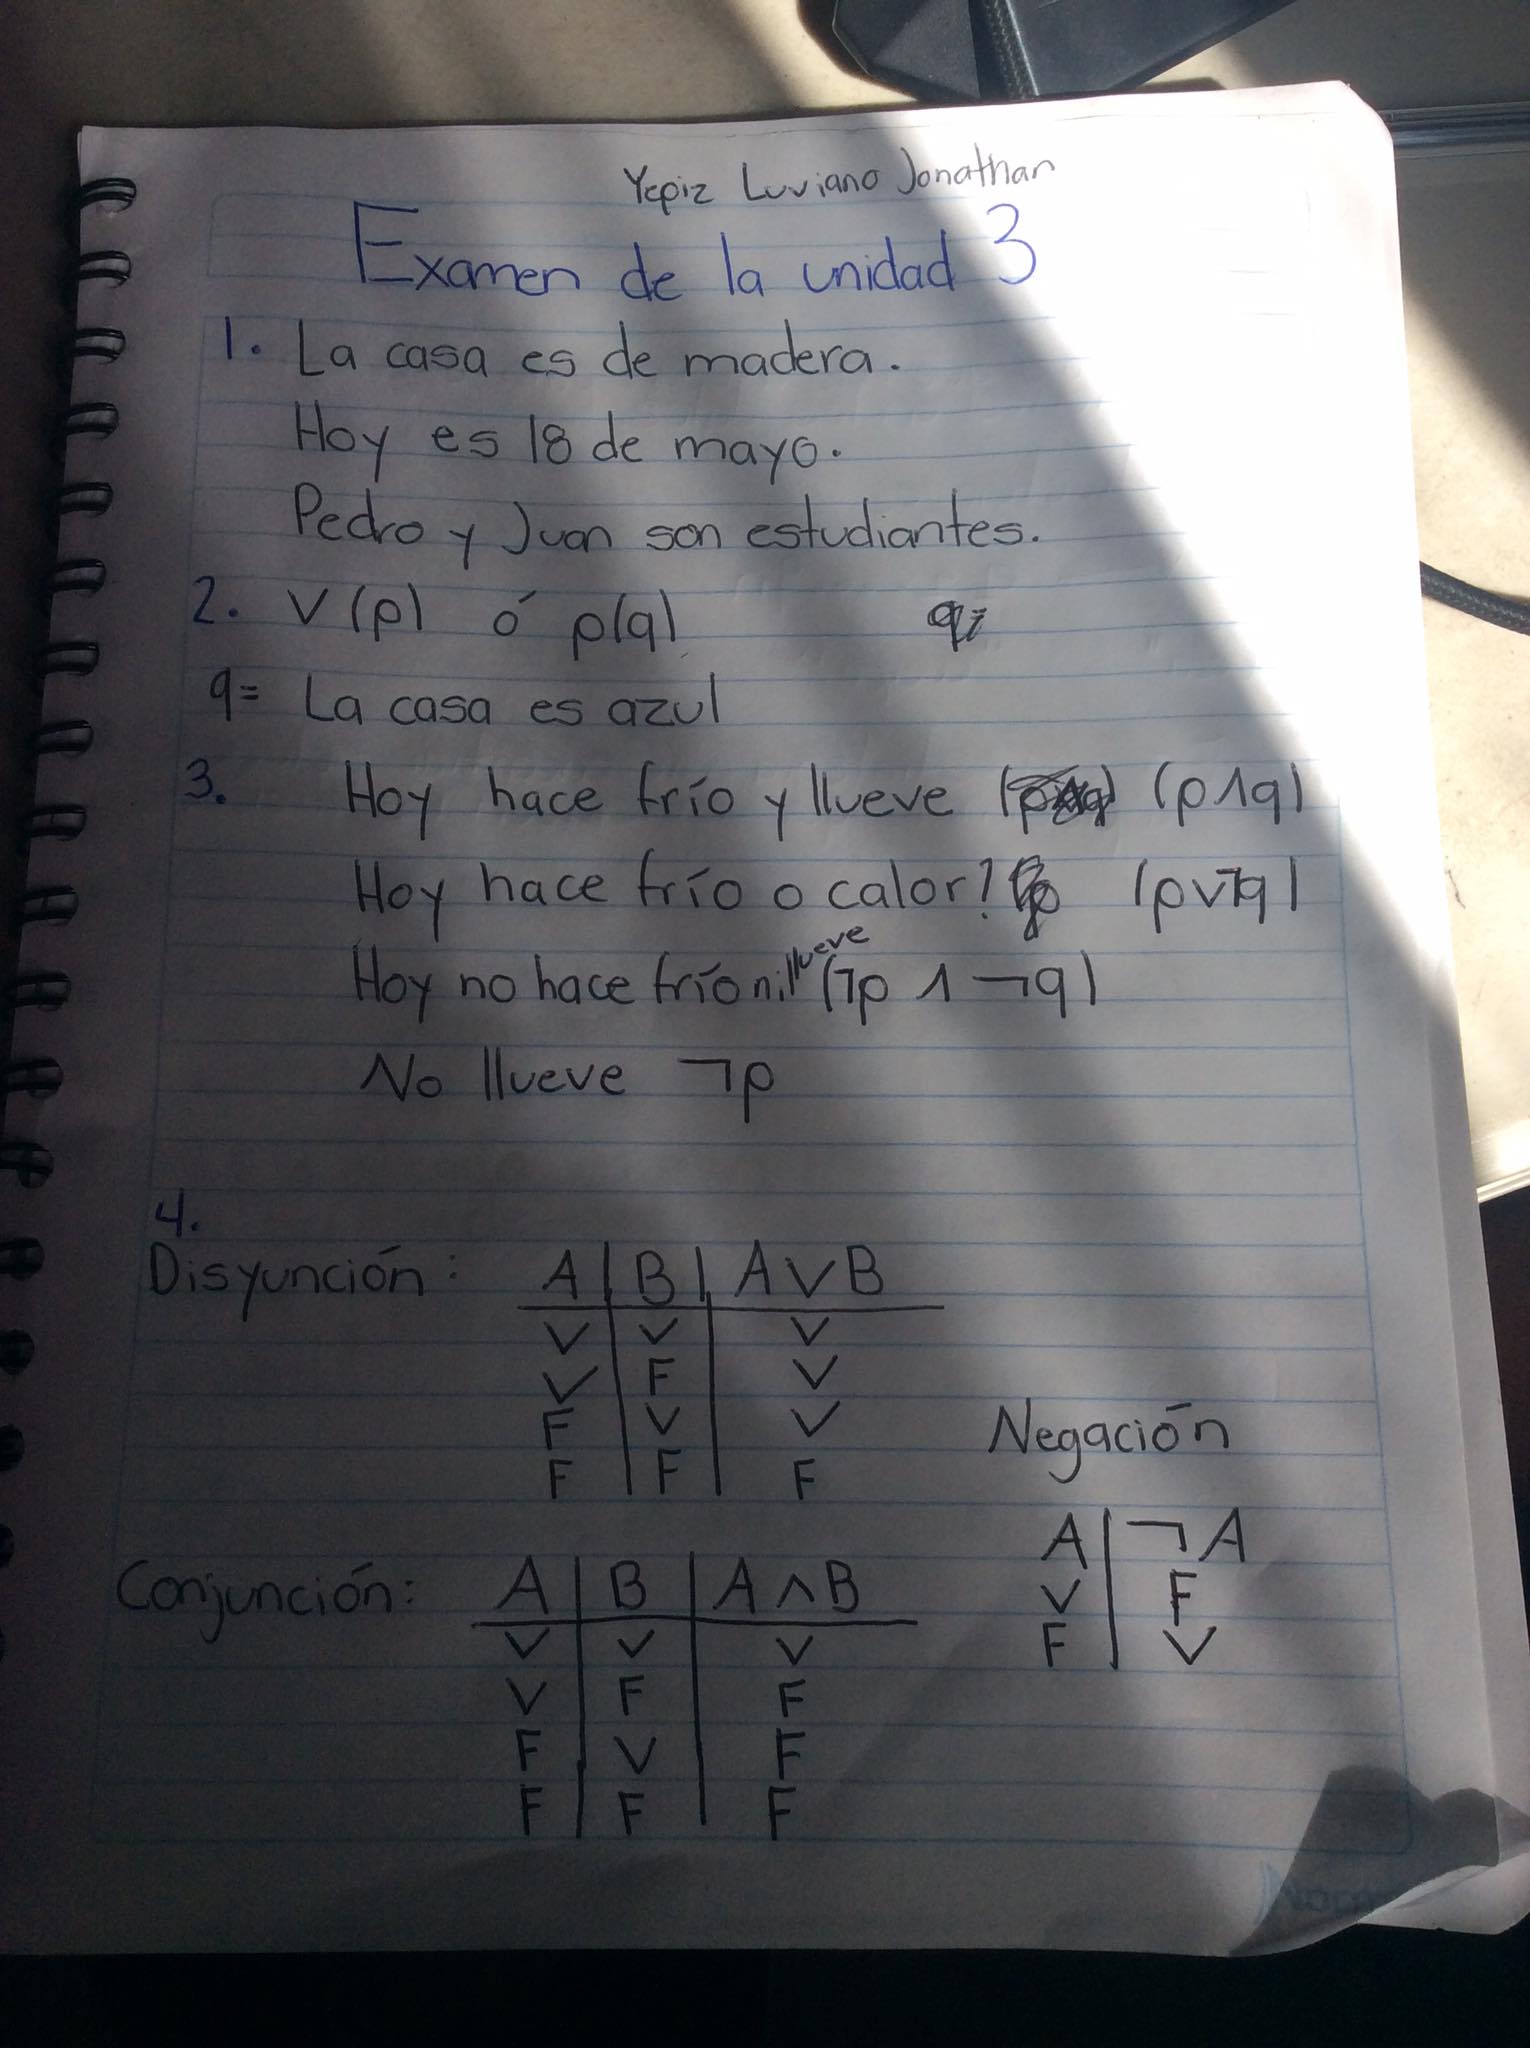 Yepiz Luviano Jonathan
Examen de la unidad 3
1. La casa es de madera.
Hoy es 18 de mayo.
Pedro y Juan son estudiantes.
2. V(p) ó p(q)
q= La casa es azul
3. Hoy hace frío y llueve (p∧q)
Hoy hace frío o calor? (p∨¬q)
Hoy no hace frío ni llueve (¬p ∧ ¬q)
No llueve ¬p
4.
Disyunción: A | B | A∨B
V V V
V F V
F V V
F F F
Negación
A | ¬A
V F
F V
Conjunción: A | B | A∧B
V V V
V F F
F V F
F F F